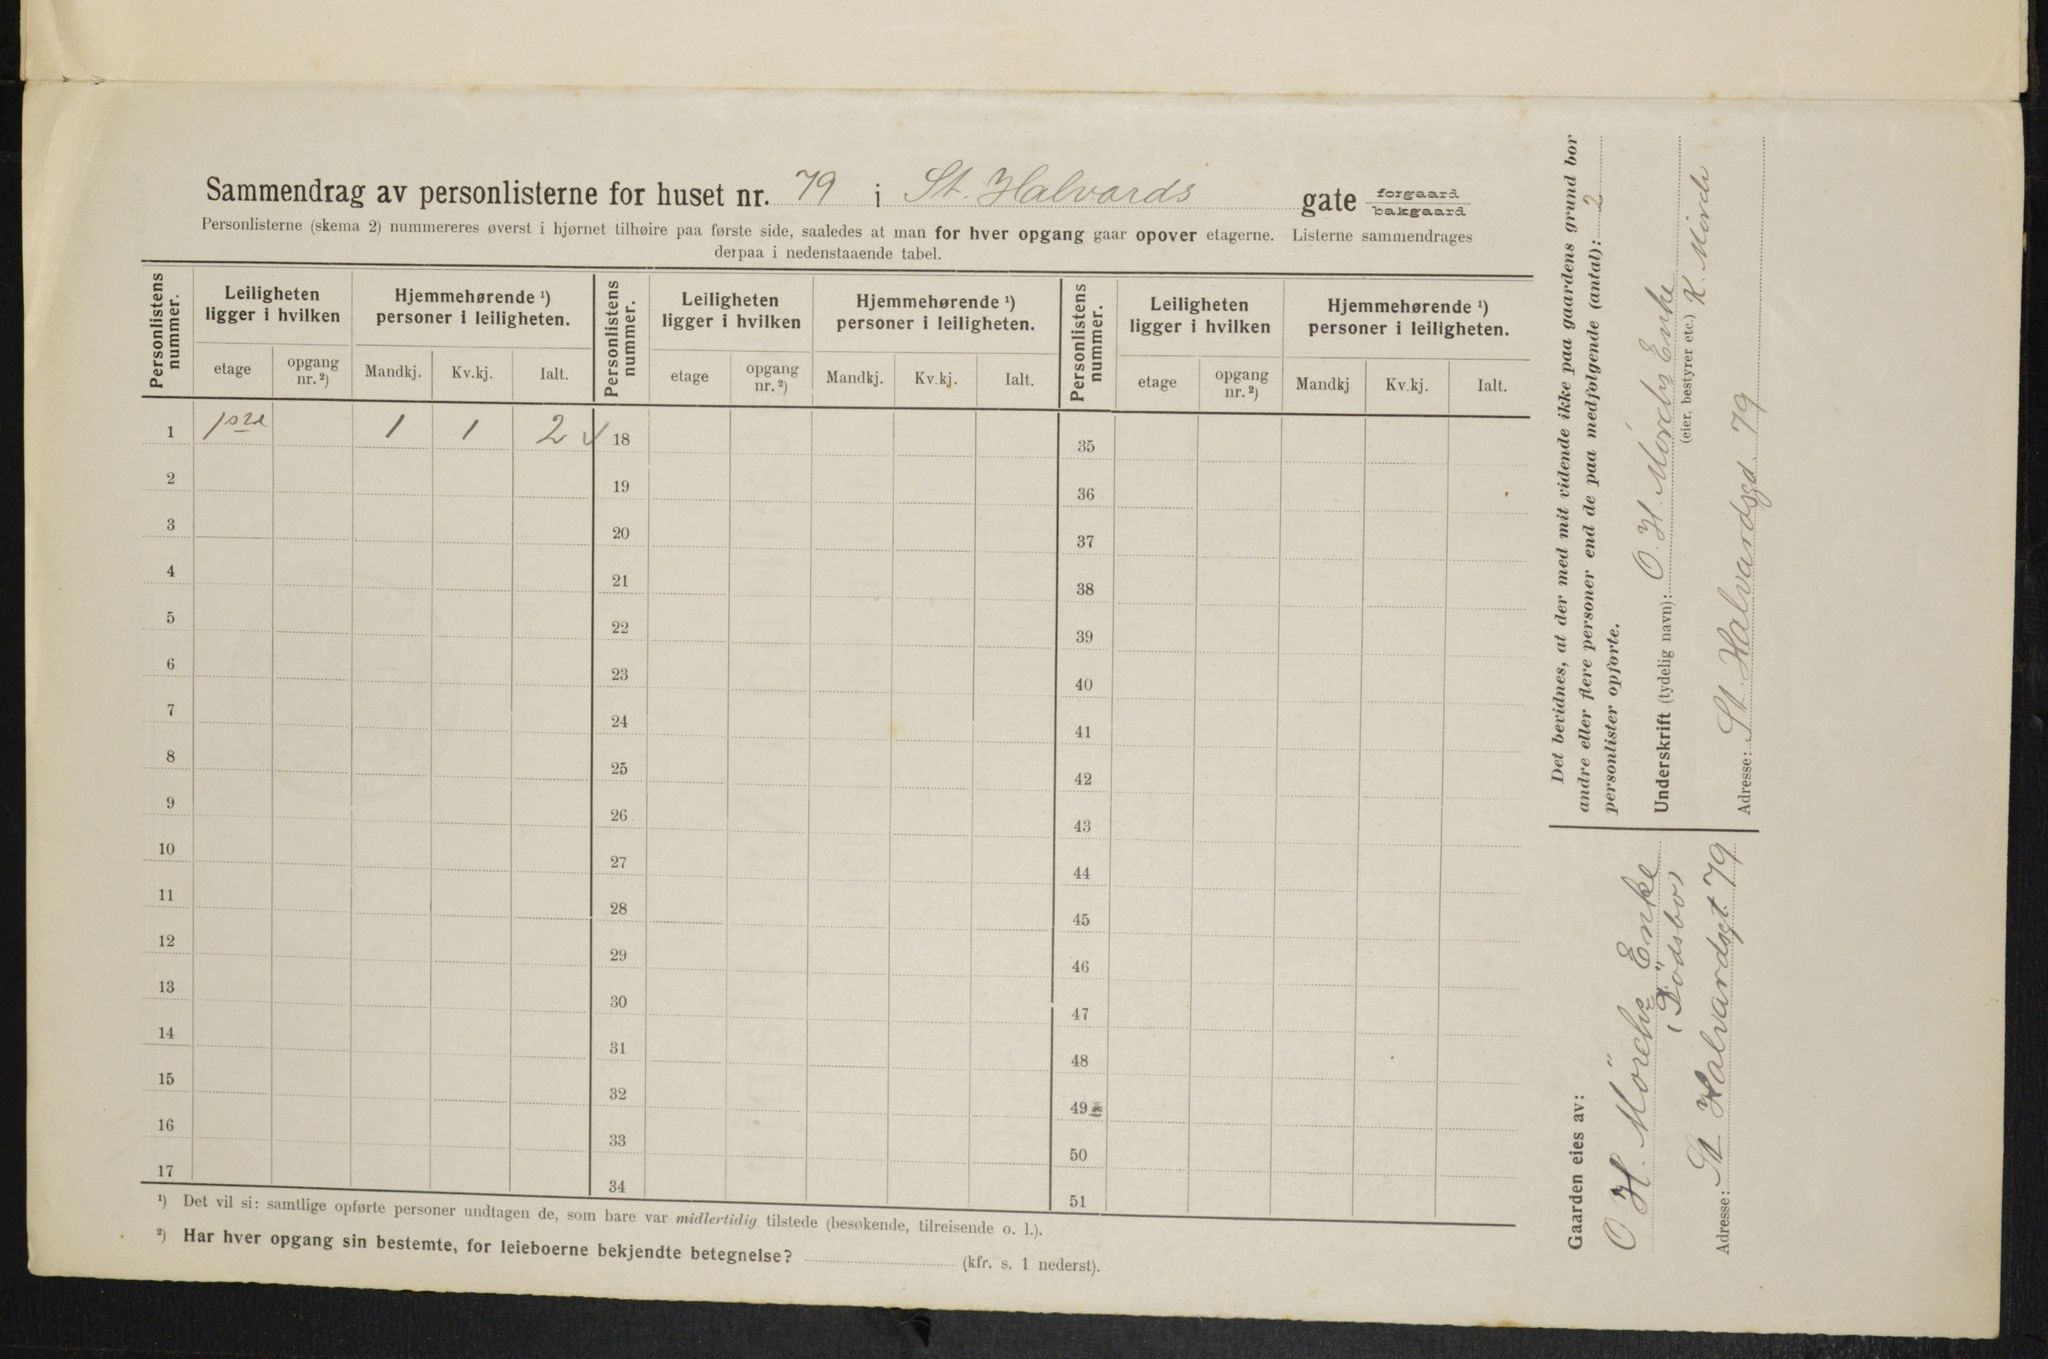 Sammendrag av personlisterne for huset nr. 79 i St. Halvards gate forgaard
bakgaard
Personlisterne (skema 2) nummereres øverst i hjørnet tilhøire paa første side, saaledes at man for hver opgang gaar opover etagerne. Listerne sammendrages
derpaa i nedenstaaende tabel.
Personlistens nummer. Leiligheten ligger i hvilken Hjemmehørende ¹) personer i leiligheten. Personlistens nummer. Leiligheten ligger i hvilken Hjemmehørende ¹) personer i leiligheten. Personlistens nummer. Leiligheten ligger i hvilken Hjemmehørende ¹) personer i leiligheten.
etage opgang nr. ²) Mandkj. Kv.kj. Ialt. etage opgang nr. ²) Mandkj. Kv.kj. Ialt. etage opgang nr. ²) Mandkj Kv.kj. Ialt.
1 1 1 2 18 35
2 19 36
3 20 37
4 21 38
5 22 39
6 23 40
7 24 41
8 25 42
9 26 43
10 27 44
11 28 45
12 29 46
13 30 47
14 31 48
15 32 49
16 33 50
17 34 51
¹) Det vil si: samtlige opførte personer undtagen de, som bare var midlertidig tilstede (besøkende, tilreisende o. l.).
²) Har hver opgang sin bestemte, for leieboerne bekjendte betegnelse? (kfr. s. 1 nederst).
Det bevidnes, at der med mit vidende ikke paa gaardens grund bor
andre eller flere personer end de paa medfølgende (antal): 2
personlister opførte.
Underskrift (tydelig navn): O. H. Mörchs Enke
(eier, bestyrer etc.) K.
Adresse: St. Halvardsgd 79
Gaarden eies av:
O H. Mörchs Enke
(Dödsbo)
Adresse: St Halvardsgt. 79